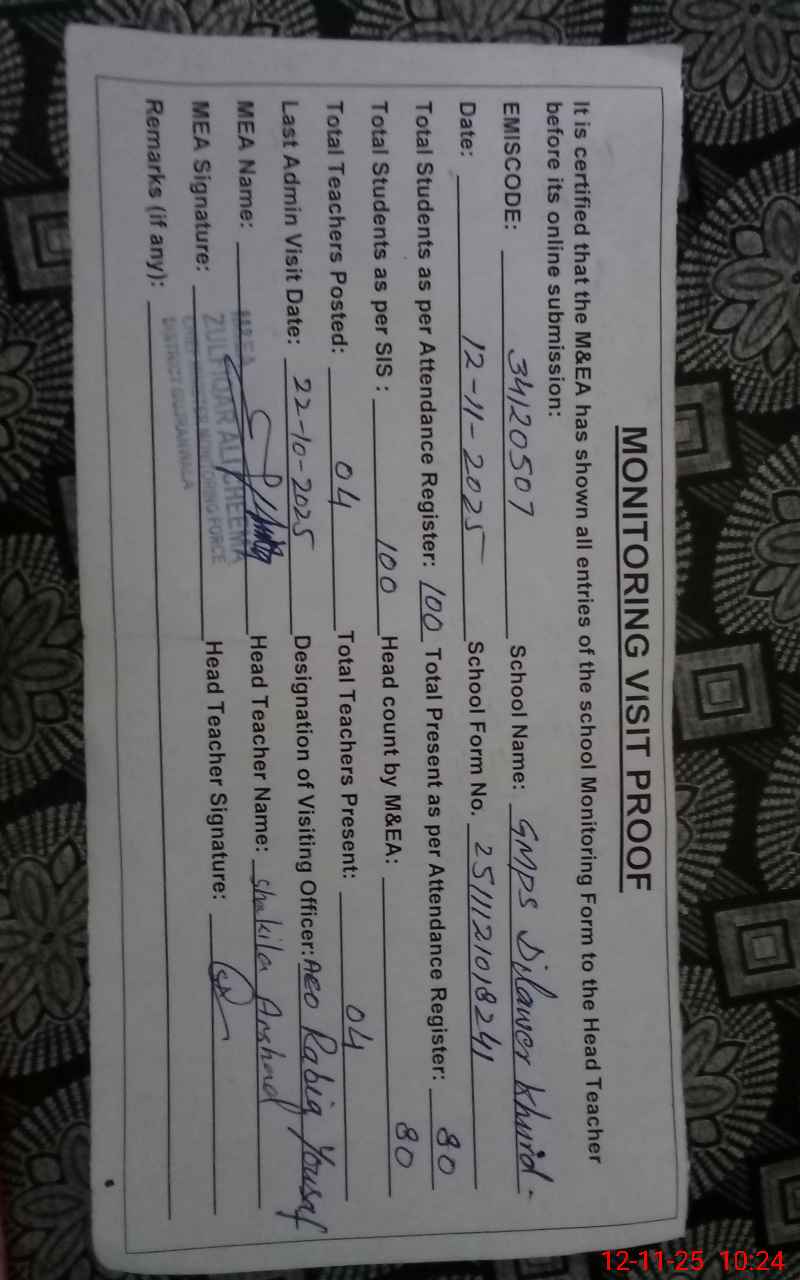 MONITORING VISIT PROOF
It is certified that the M&EA has shown all entries of the school Monitoring Form to the Head Teacher
before its online submission:
EMISCODE: 34120507 School Name: GMPS Dilawer Khurd.
Date: 12-11-2025 School Form No. 2511121018241
Total Students as per Attendance Register: 100 Total Present as per Attendance Register: 80
Total Students as per SIS : 100 Head count by M&EA: 80
Total Teachers Posted: 04 Total Teachers Present: 04
Last Admin Visit Date: 22-10-2025 Designation of Visiting Officer: AEO Rabia Yousaf
MEA Name: Head Teacher Name: Shakila Arshad
MEA Signature: Head Teacher Signature:
Remarks (if any):
M&EA
ZULFIQAR ALI CHEEMA
CHIEF MINISTER MONITORING FORCE
DISTRICT GUJRANWALA
12-11-25 10:24